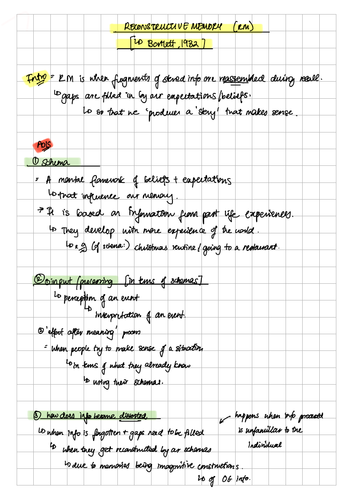 RECONSTRUCTIVE MEMORY (RM)
[↳ Bartlett, 1932]
Intro = RM is when fragments of stored info are reassembled during recall.
↳ gaps are filled in by our expectations/beliefs.
↳ so that we 'produce a 'story' that makes sense.
① schema
• A mental framework of beliefs + expectations
↳ that influence our memory.
→ It is based on information from past life experiences.
↳ They develop with more experience of the world.
↳ e.g (of schema:) christmas routine / going to a restaurant.
② input / processing [in terms of schemas]
↳ perception of an event
↳ interpretation of an event.
'effort after meaning'
= when people try to make sense of a situation
↳ in terms of what they already know
↳ using their schemas.
③ how does info become distorted
↳ when info is forgotten + gaps need to be filled
↳ when they get reconstructed by our schemas
↳ due to memories being imaginative constructions.
↳ of OG info.
↙ happens when info processed
is unfamiliar to the
individual